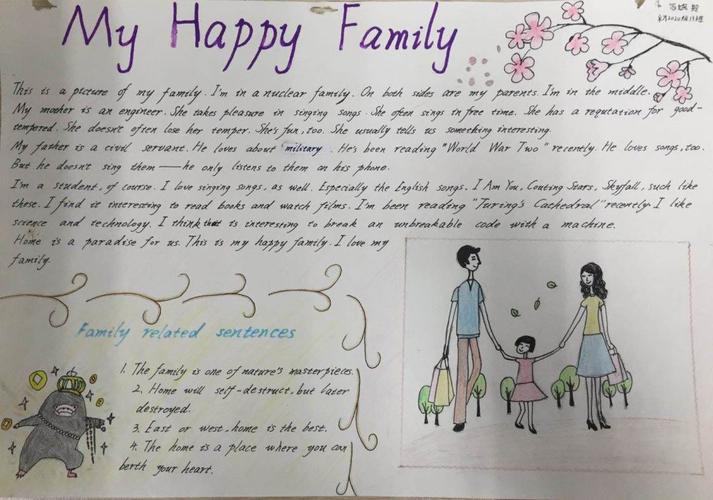 My Happy Family
This is a picture of my family. I'm in a nuclear family. On both sides are my parents. I'm in the middle.
My mother is an engineer. She takes pleasure in singing songs. She often sings in free time. She has a reputation for good-
tempered. She doesn't often lose her temper. She's fun, too. She usually tells us something interesting.
My father is a civil servant. He loves about "military". He's been reading "World War Two" recently. He loves songs, too.
But he doesn't sing them — he only listens to them on his phone.
I'm a student, of course. I love singing songs, as well. Especially the English songs. I Am You, Couting Stars, Skyfall, such like
these. I find it interesting to read books and watch films. I'm been reading "Turing's Cathedral" recently. I like
science and technology. I think that is interesting to break an unbreakable code with a machine.
Home is a paradise for us. This is my happy family. I love my
family.
Family related sentences
1. The family is one of nature's masterpieces.
2. Home will self-destruct, but later
destroyed.
3. East or west, home is the best.
4. The home is a place where you can
berth your heart.